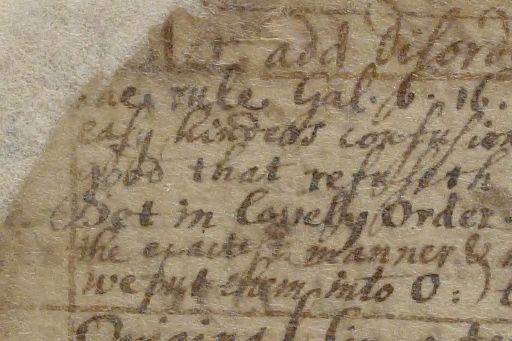 add disord
rule Gal. 6. 16.
easy hinders confusion
good that refuseth
Set in lovely Order
the exact manner &
we put them into O:
Original